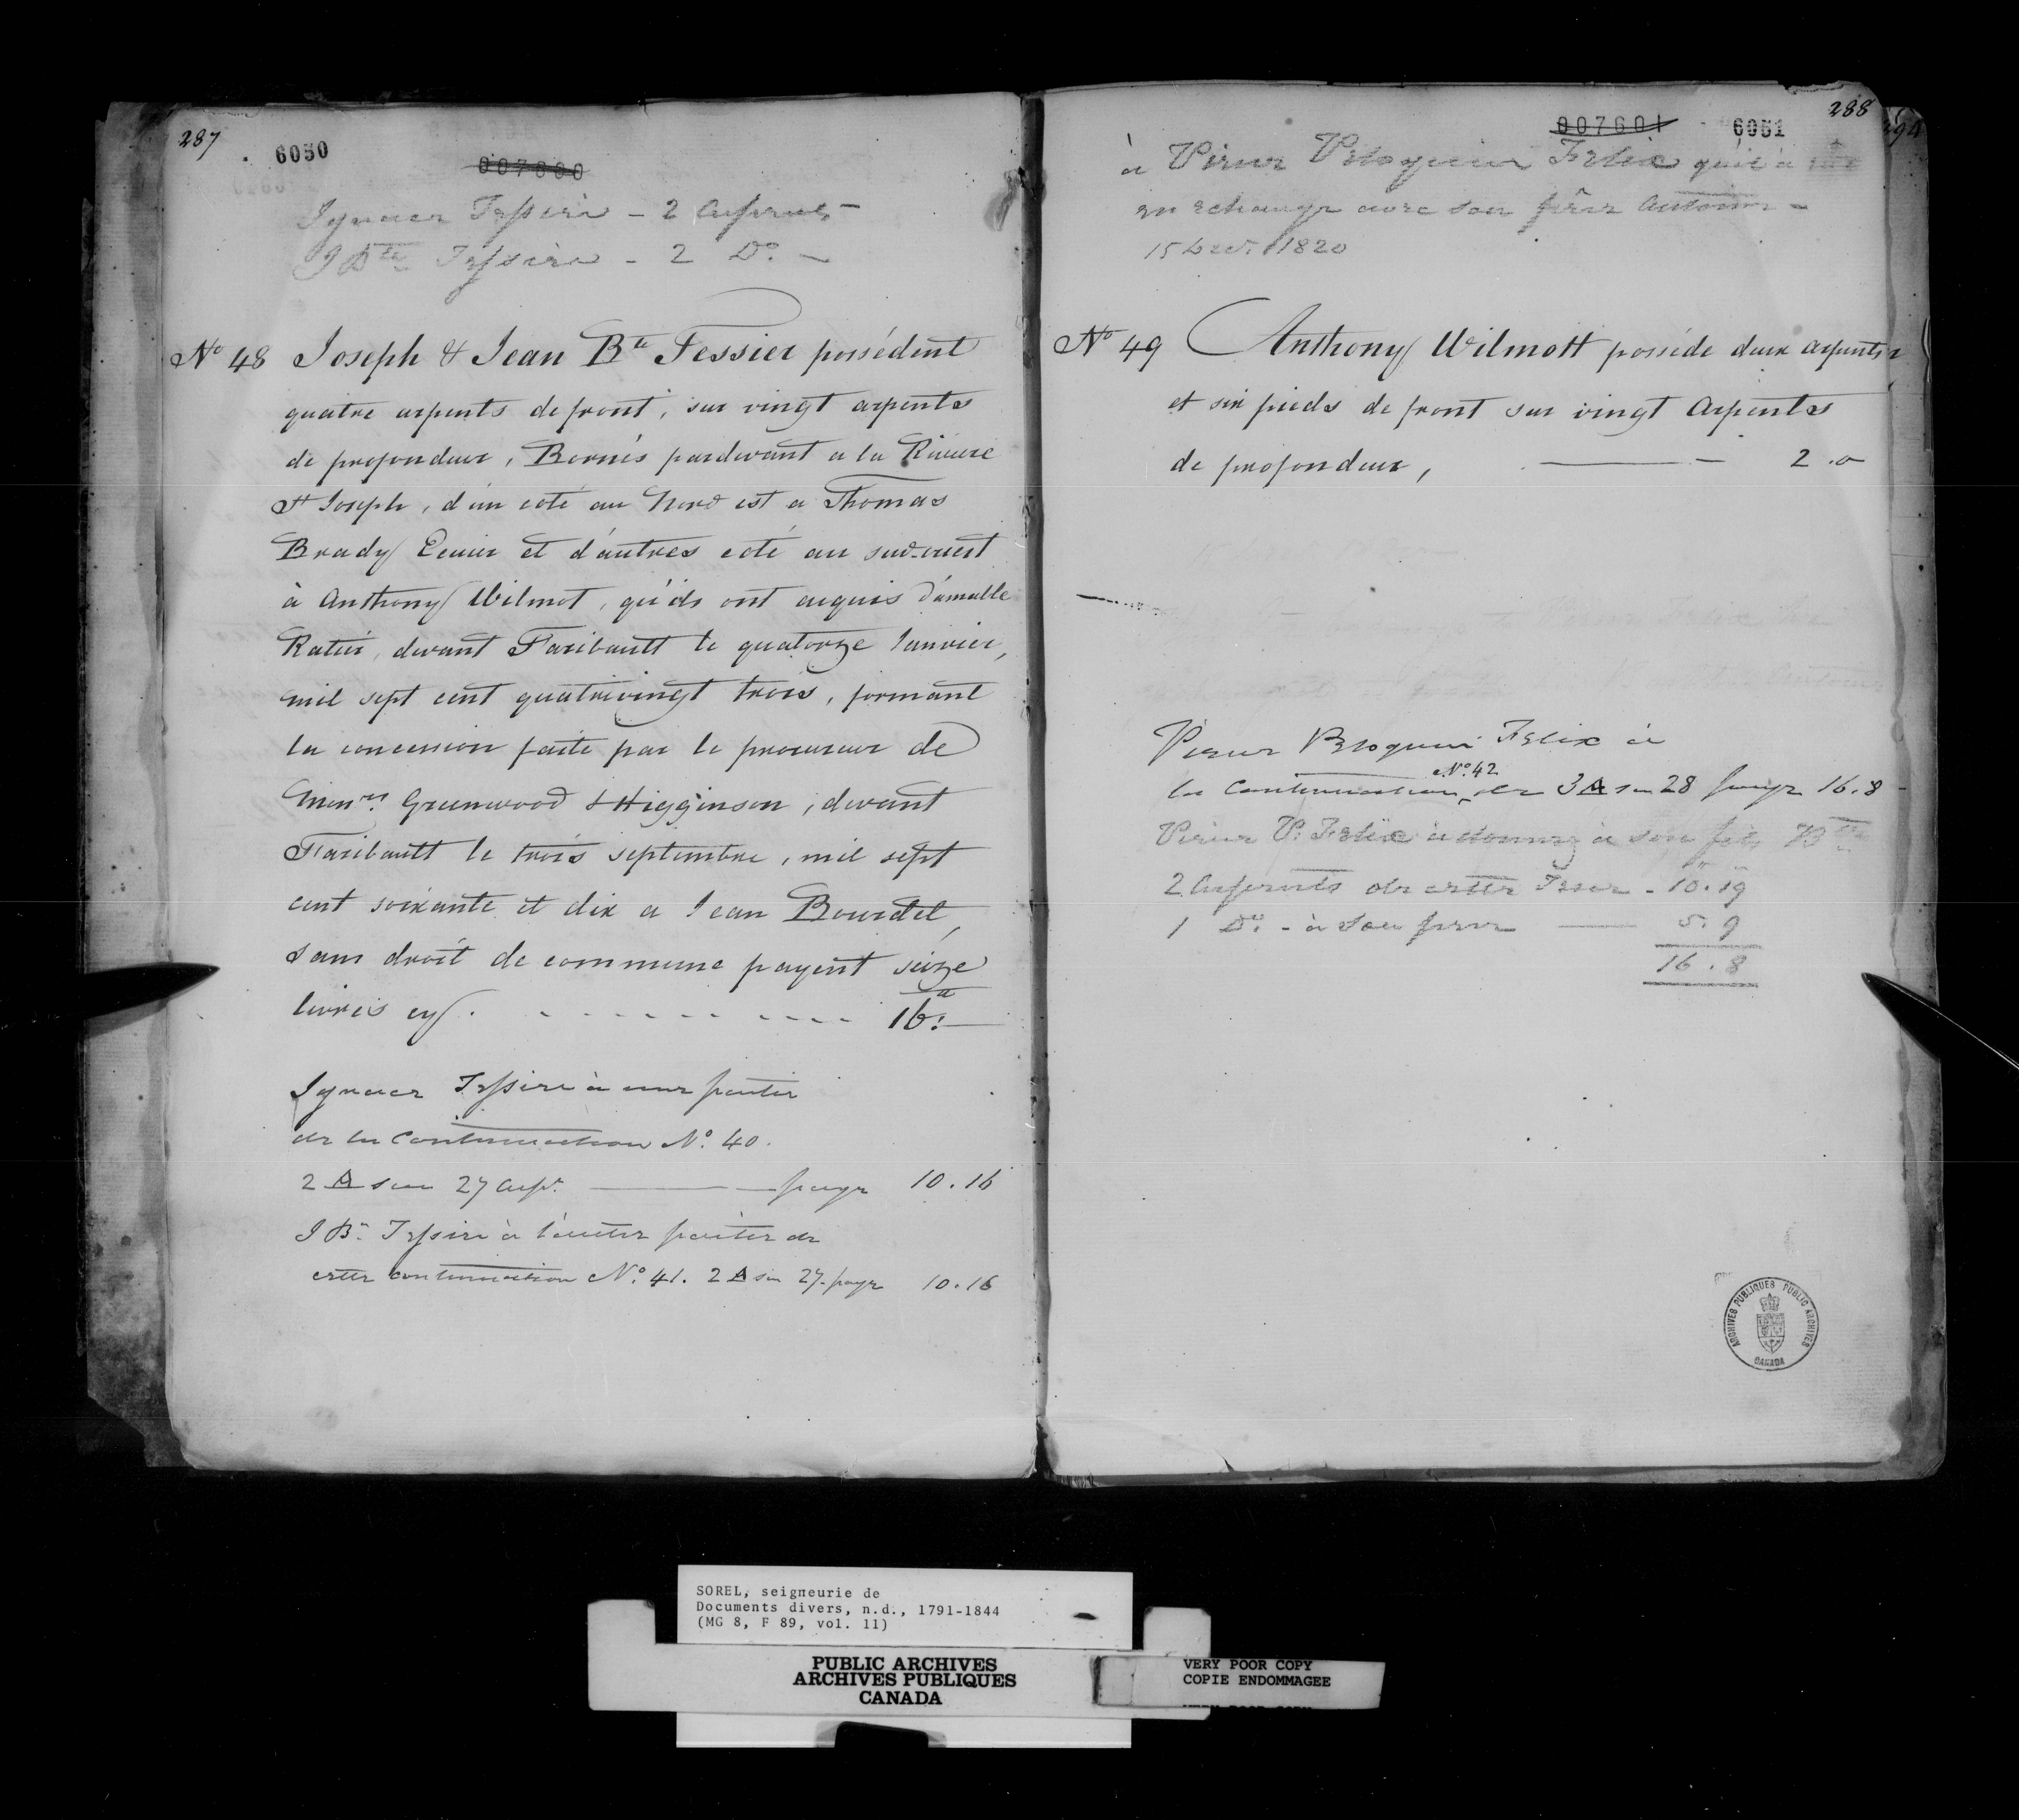 287
6050
007600
Ignace Tessier - 2 Arpents -
J Bte Tessier - 2 Do. -
No 48 Joseph & Jean Bte Tessier possédent
quatre arpents de front, sur vingt arpents
de profondeur, Bornés pardevant a la Riviere
St Joseph, d'un coté au Nord est a Thomas
Brady Ecuier et d'autres coté au sud-ouest
à Anthony Wilmot, qu'ils ont acquis d'amable
Ratier, devant Faribault le quatorze Janvier,
mil sept cent quatrevingt trois, formant
la concession faite par le procureur de
Monrs. Greenwood & Higginson, devant
Faribault le trois septembre, mil sept
cent soixante et dix a Jean Bourdel,
sans droit de commune payent seize
livres cy. 16:
Ignace Tessier à une partie
de la Continuation No. 40.
2 A sur 27 Arp. paye 10.16
J Bte Tessier à l'autre partie de
cette continuation No. 41. 2 A sur 27. paye 10.16
288
294
007601
6051
à Pierre Peloquin Felix qu'il a
en echange avec son frère Antoine -
15 Decr. 1820
No 49 Anthony Wilmott posséde deux arpents
et six pieds de front sur vingt Arpents
de profondeur, 2.0
Pierre Peloquin Felix à
No. 42
la Continuation de 3 A sur 28 paye 16.8
Pierre P. Felix à donné à son fils
2 Arpents de cette Terre - 10.19
1 Do. - à son frere 5.9
16.8
ARCHIVES PUBLIQUES PUBLIC ARCHIVES
CANADA
SOREL, seigneurie de
Documents divers, n.d., 1791-1844
(MG 8, F 89, vol. 11)
PUBLIC ARCHIVES
ARCHIVES PUBLIQUES
CANADA
VERY POOR COPY
COPIE ENDOMMAGEE